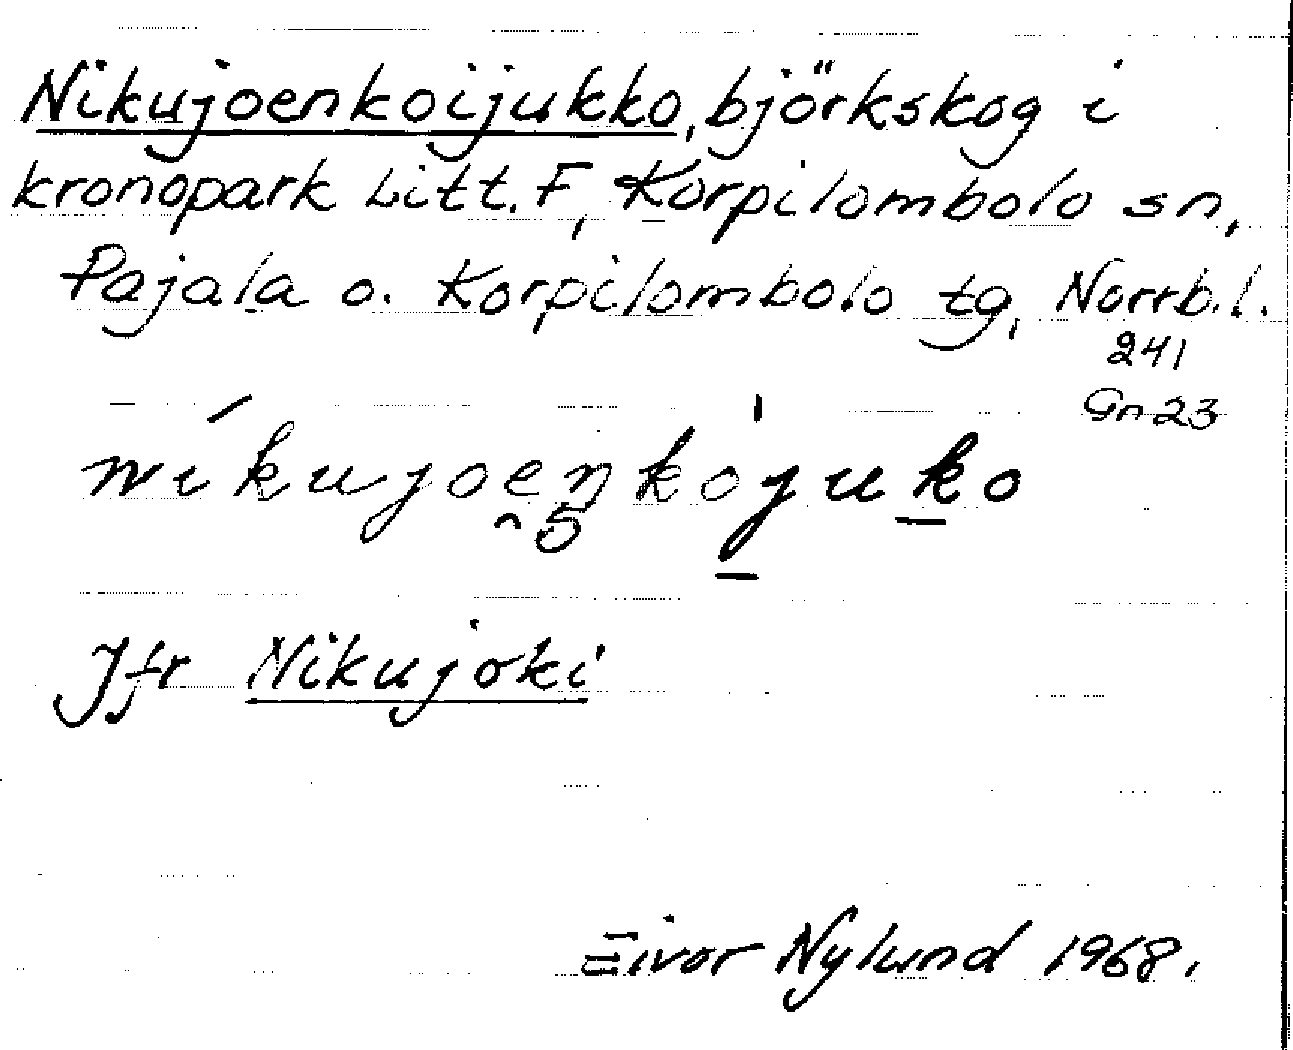 Nikujoenkoijukko, björkskog i
kronopark Litt. F, Korpilombolo sn,
Pajala o. Korpilombolo tg, Norrb.l.
241
Gn 23
nikujoeŋkojuko
Jfr Nikujoki
Eivor Nylund 1968.